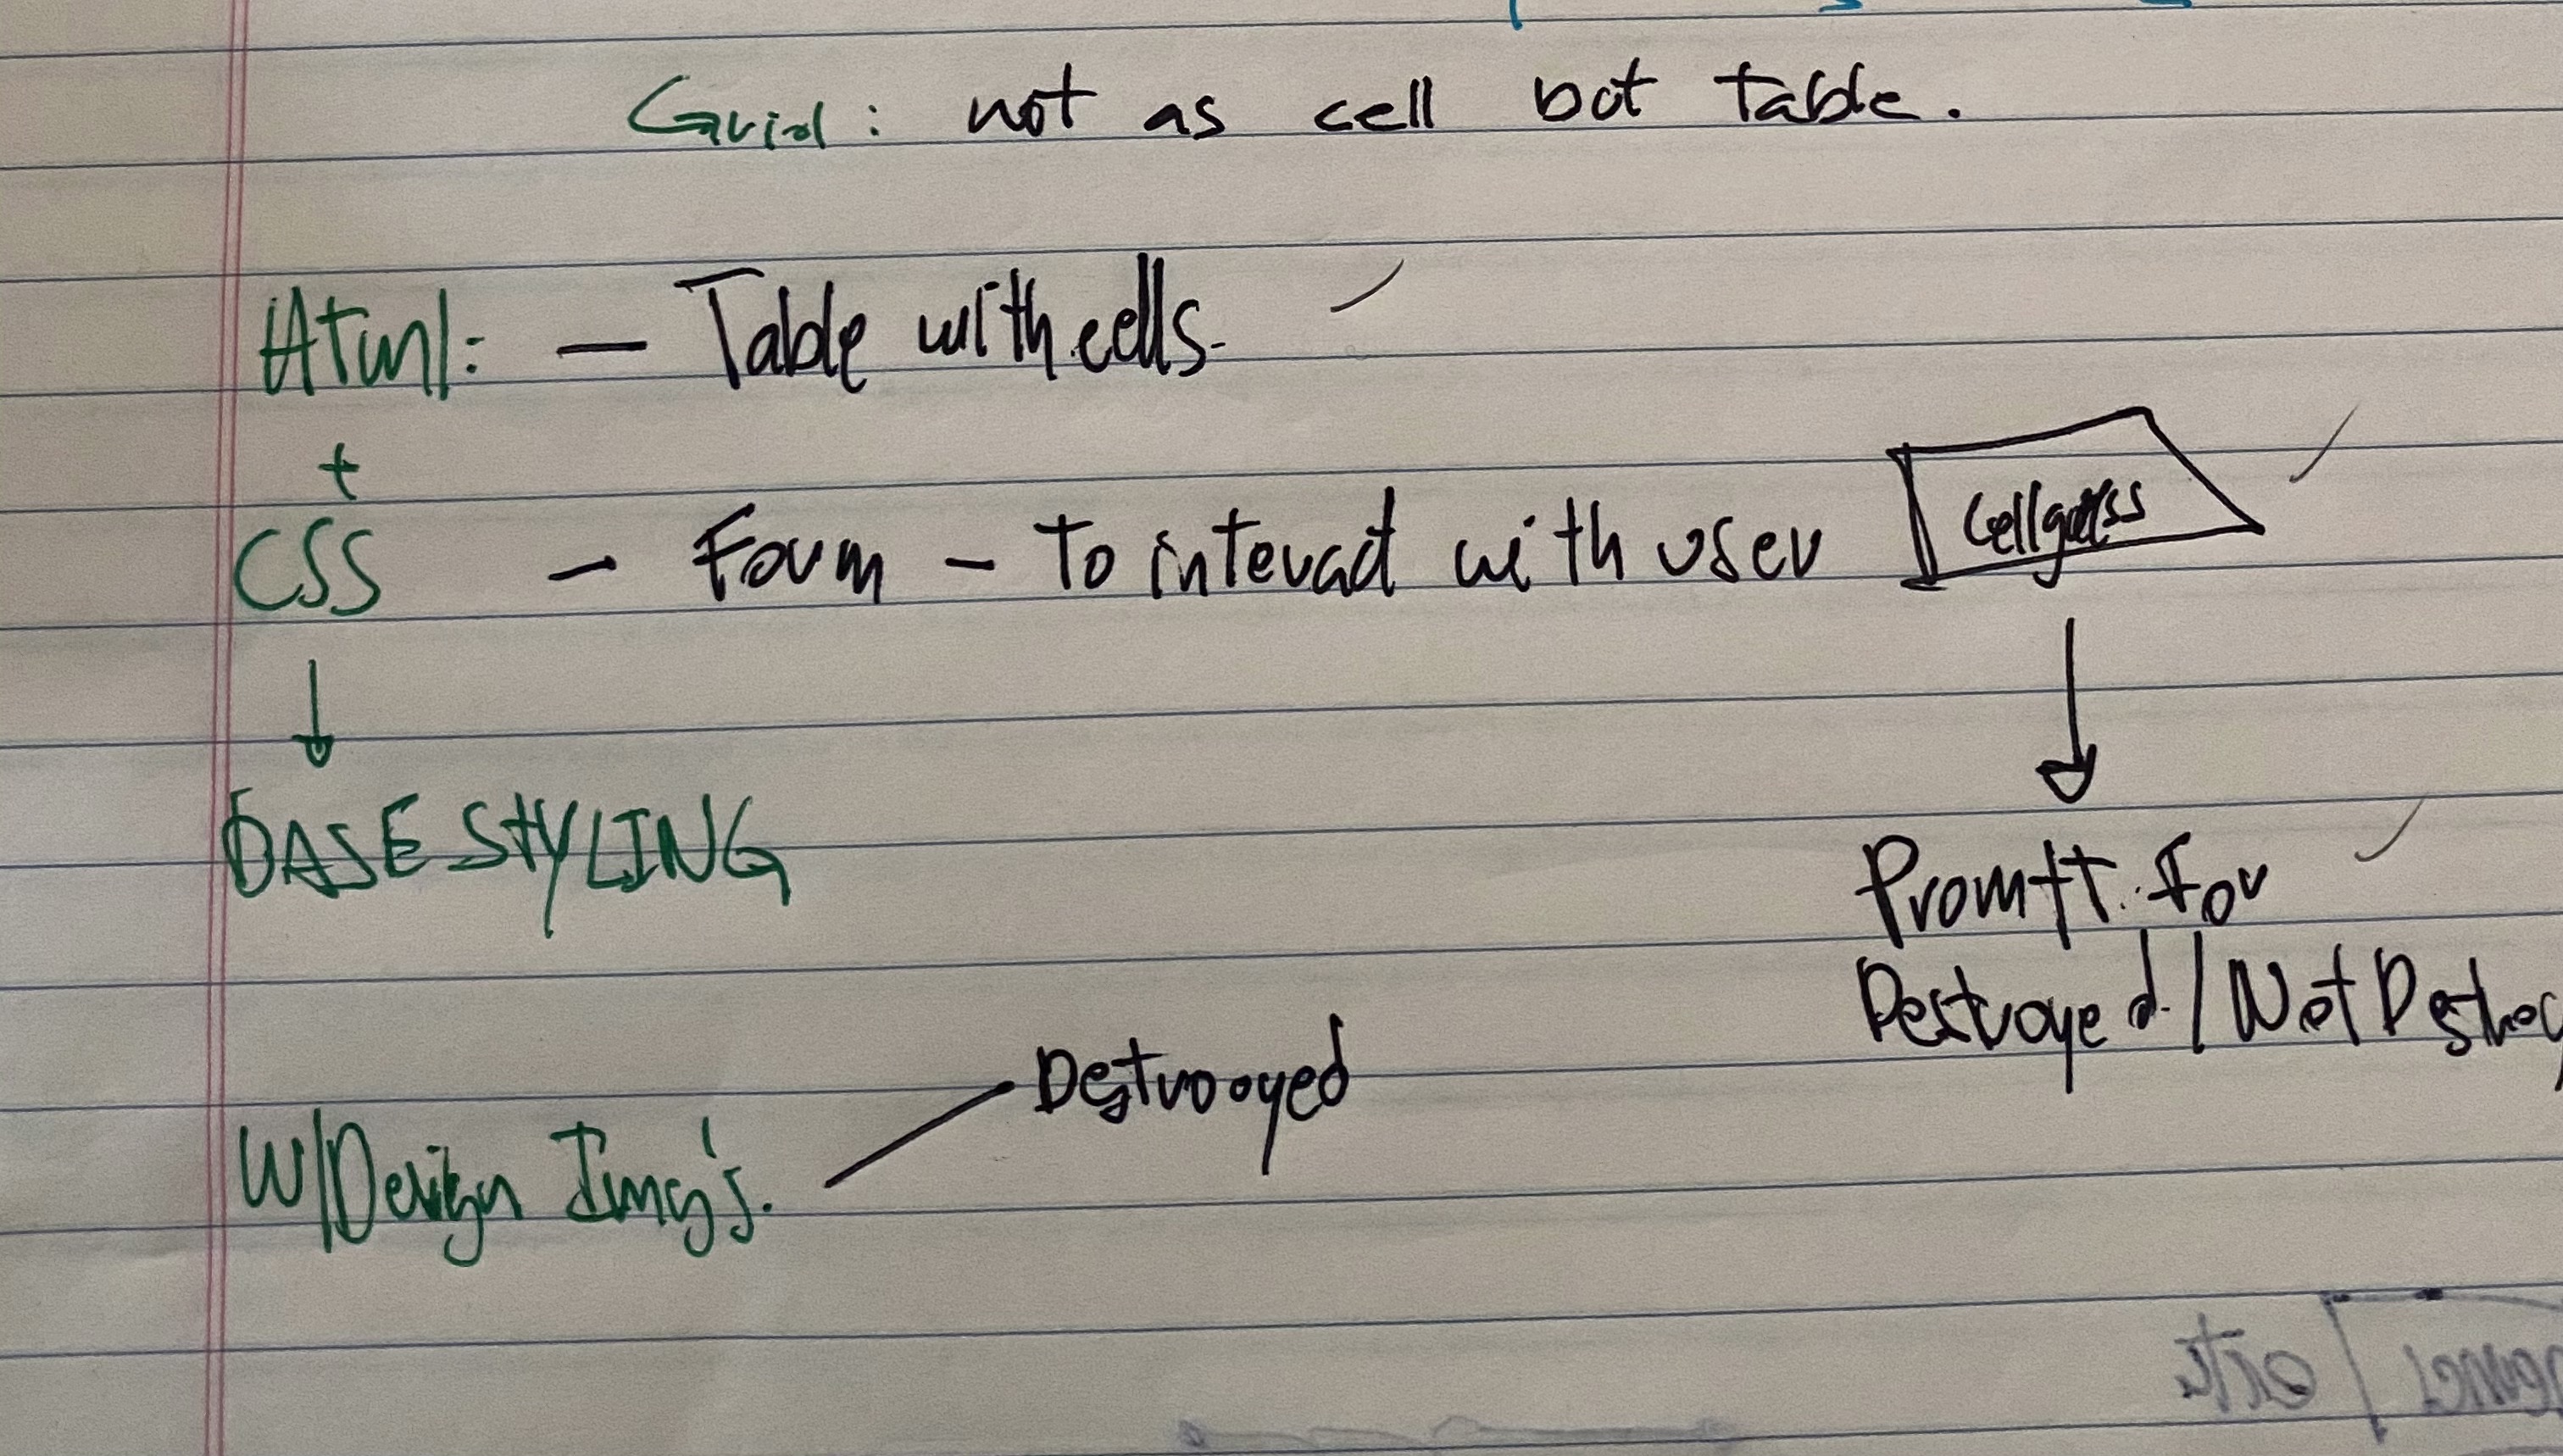 Grid: not as cell but Table.
Html: — Table with cells.
+
CSS - Form - To interact with user
↓
BASE STYLING
Promtt. For
Destroyed / Not Destroy
Destrooyed
W/Design Img's.